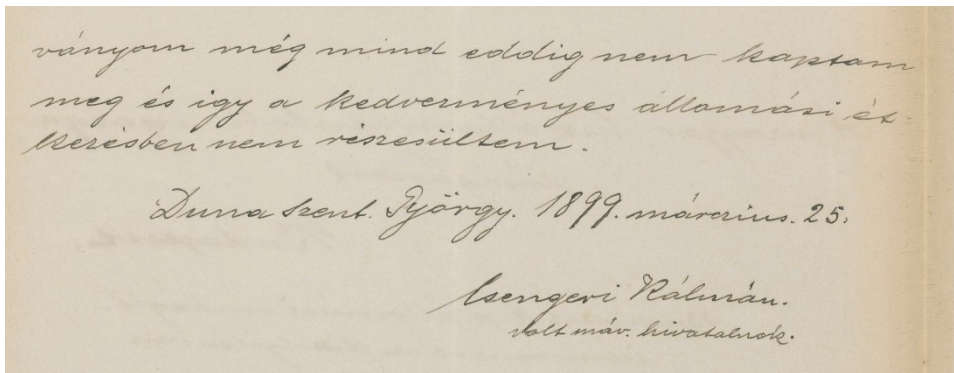 ványom még mind eddig nem kaptam
meg és igy a kedvezményes állomási ét-
kezésben nem részesültem.
Duna Szent. György. 1899. március. 25.
Csengeri Kálmán.
volt máv. hivatalnok.